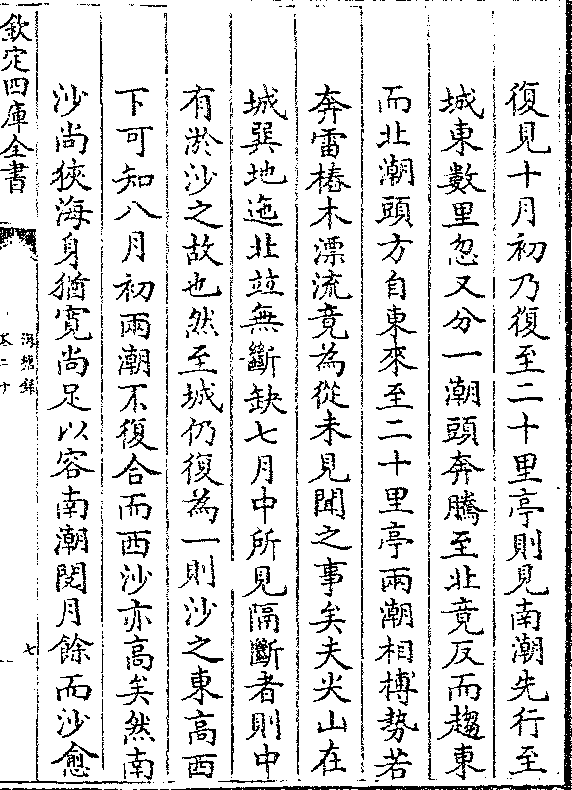 復見十月初乃復至二十里亭則見南潮先行至
城東數里忽又分一潮頭奔騰至北竟反而趨東
而北潮頭方自東來至二十里亭兩潮相搏勢若
奔雷樁木漂流竟為從未見聞之事矣夫尖山在
城巽地迤北並無斷缺七月中所見隔斷者則中
有淤沙之故也然至城仍復為一則沙之東高西
下可知八月初兩潮不復合而西沙亦高矣然南
沙尚狹海身猶寬尚足以容南潮閱月餘而沙愈
欽定四庫全書
海塘錄
卷二十
七